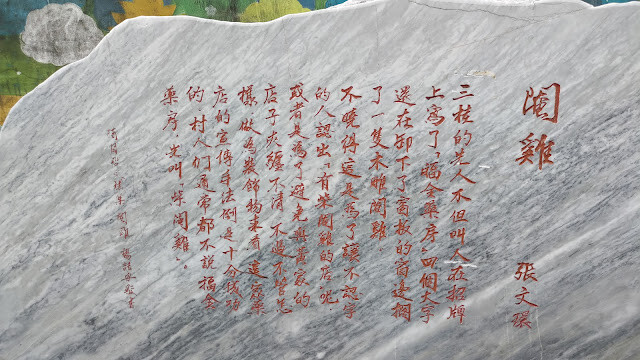 閹雞
張文環
三桂的老人不但叫人在招牌
上寫了「福全藥房」四個大字
還在卸下了窗板的窗邊擱
了一隻木雕閹雞。
不曉得這是為了讓不認字
的人認出「有柴閹雞的店」呢
或者是為了避免與舊家的
店子夾纏不清 不過不管怎
樣，做為裝飾物來看 這家藥
店的宣傳手法倒是十分成功
的。村人們通常都不說福全
藥房，光叫「柴閹雞」。